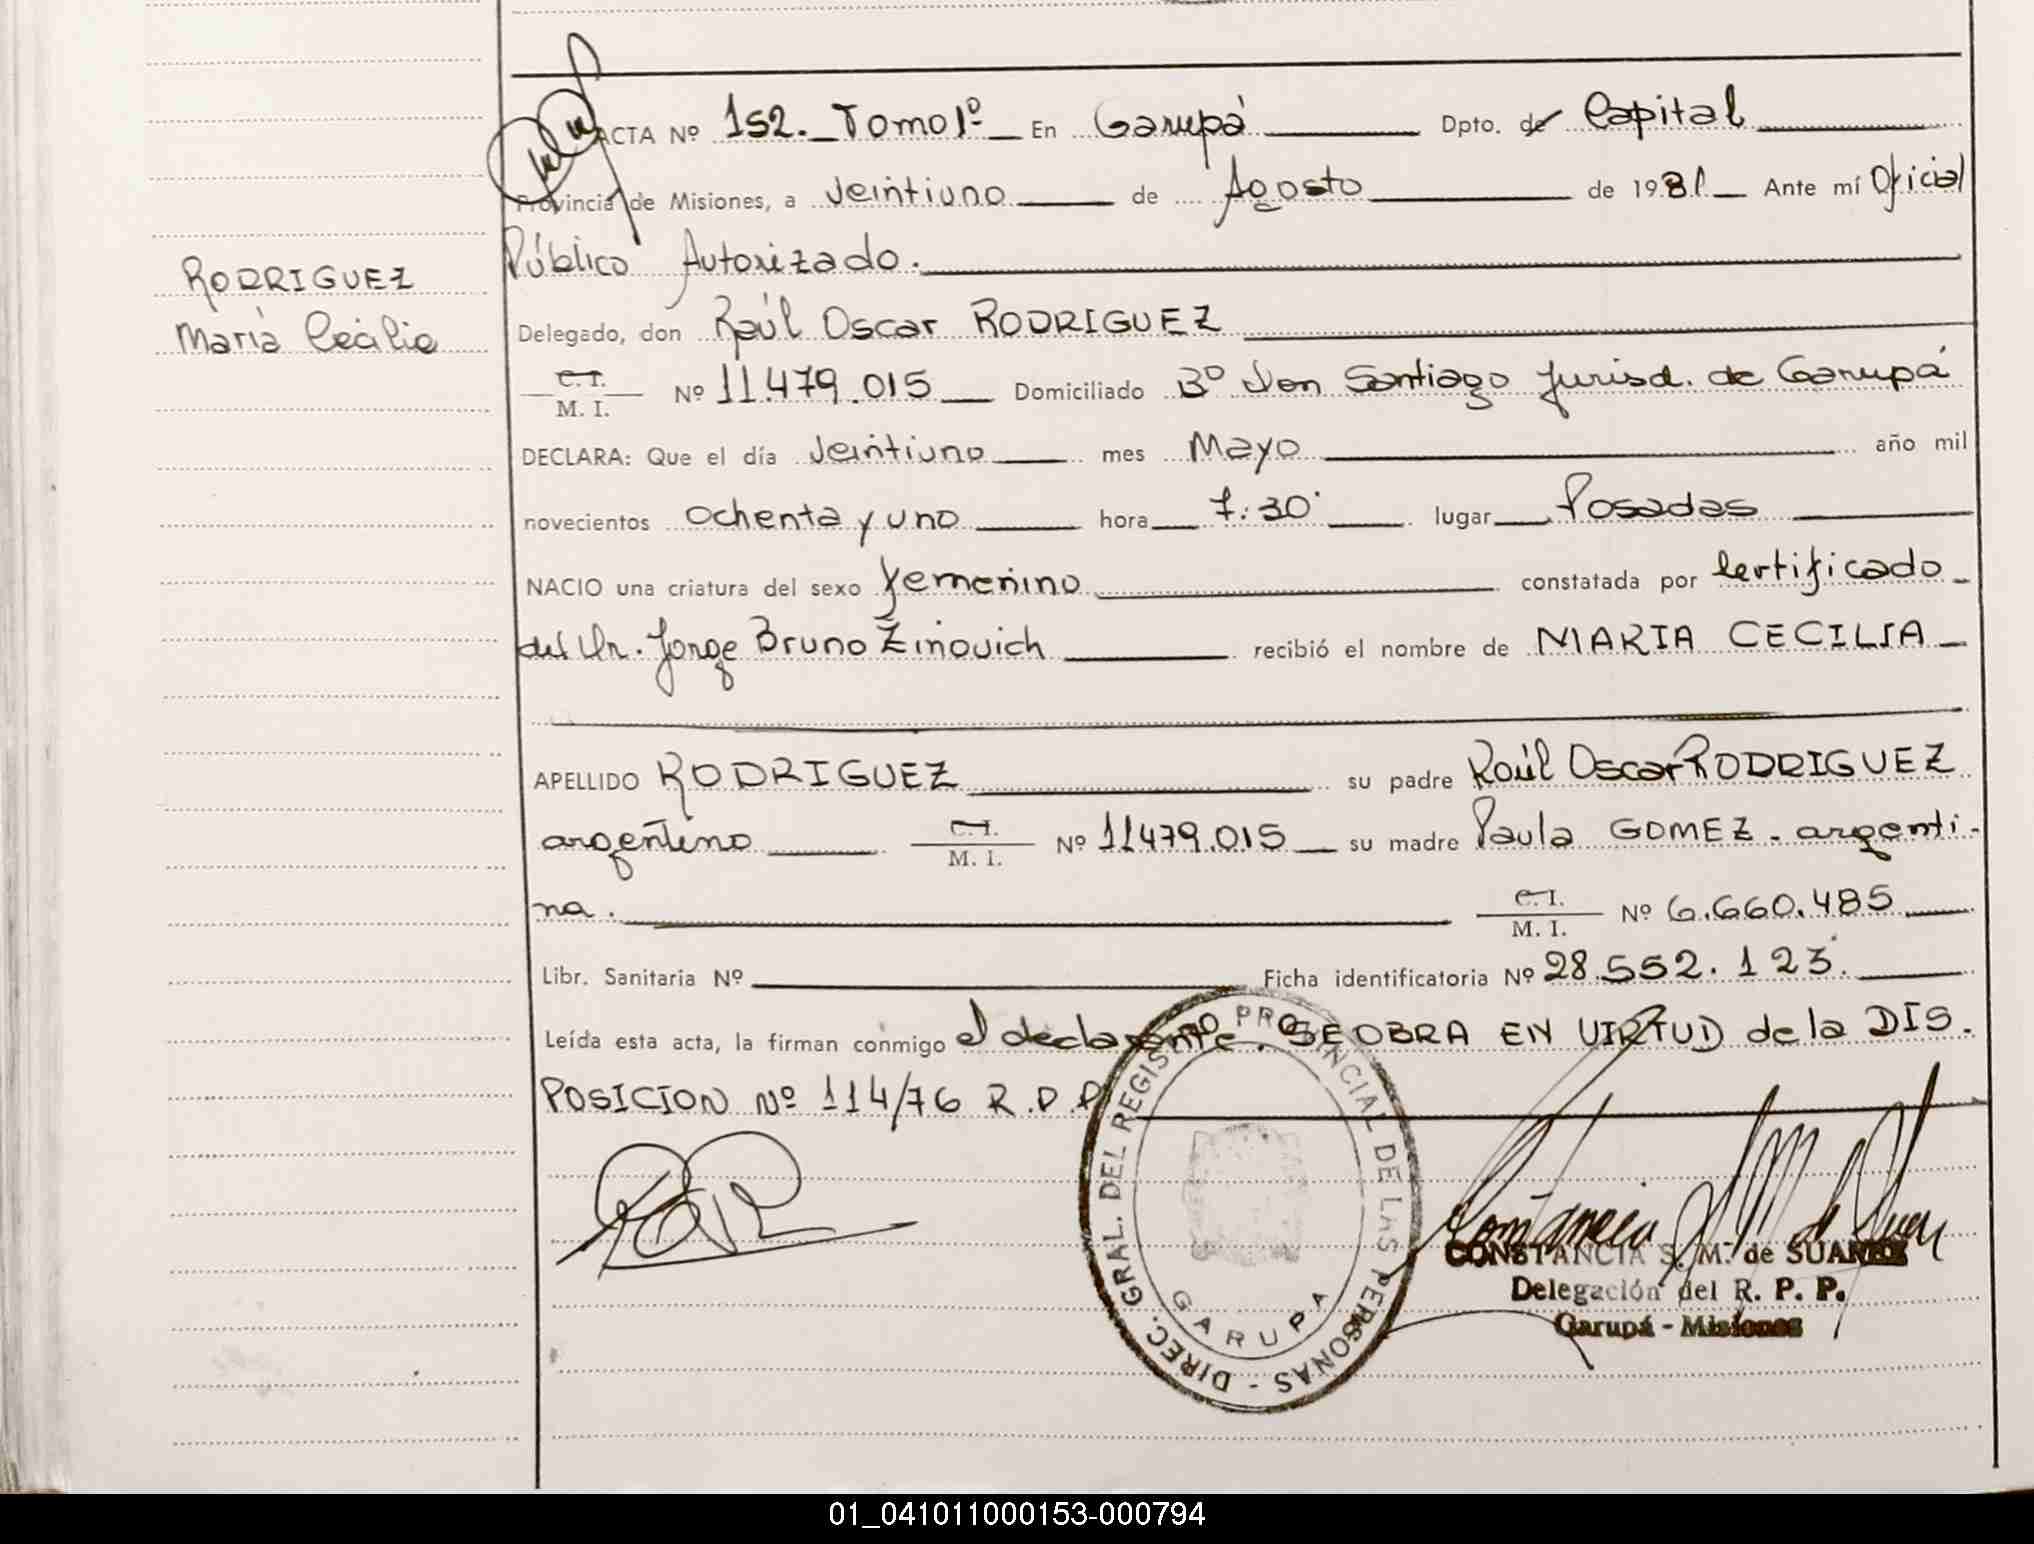 ACTA Nº 152. Tomo 1º En Garupá Dpto. de Capital
Provincia de Misiones, a veintiuno de Agosto de 1981 Ante mí Oficial
Público Autorizado.
RODRIGUEZ
María Cecilia
Delegado, don Raúl Oscar RODRIGUEZ
C. I.
M. I. Nº 11.479.015 Domiciliado Bº Don Santiago Jurisd. de Garupá
DECLARA: Que el día veintiuno mes Mayo año mil
novecientos ochenta y uno hora 7:30 lugar Posadas
NACIO una criatura del sexo femenino constatada por certificado
del Dr. Jorge Bruno Zinovich recibió el nombre de MARIA CECILIA
APELLIDO RODRIGUEZ su padre Raúl Oscar RODRIGUEZ
argentino C. I. M. I. Nº 11479.015 su madre Paula GOMEZ - argenti-
na. C. I. M. I. Nº 6.660.485
Libr. Sanitaria Nº Ficha identificatoria Nº 28.552.123.
Leída esta acta, la firman conmigo el declarante. SE OBRA EN VIRTUD de la DIS.
POSICION Nº 114/76 R.P.P.
DIREC. GRAL. DEL REGISTRO PROVINCIAL DE LAS PERSONAS -
GARUPA
CONSTANCIA S. M. de SUAREZ
Delegación del R. P. P.
Garupá - Misiones
01_041011000153-000794